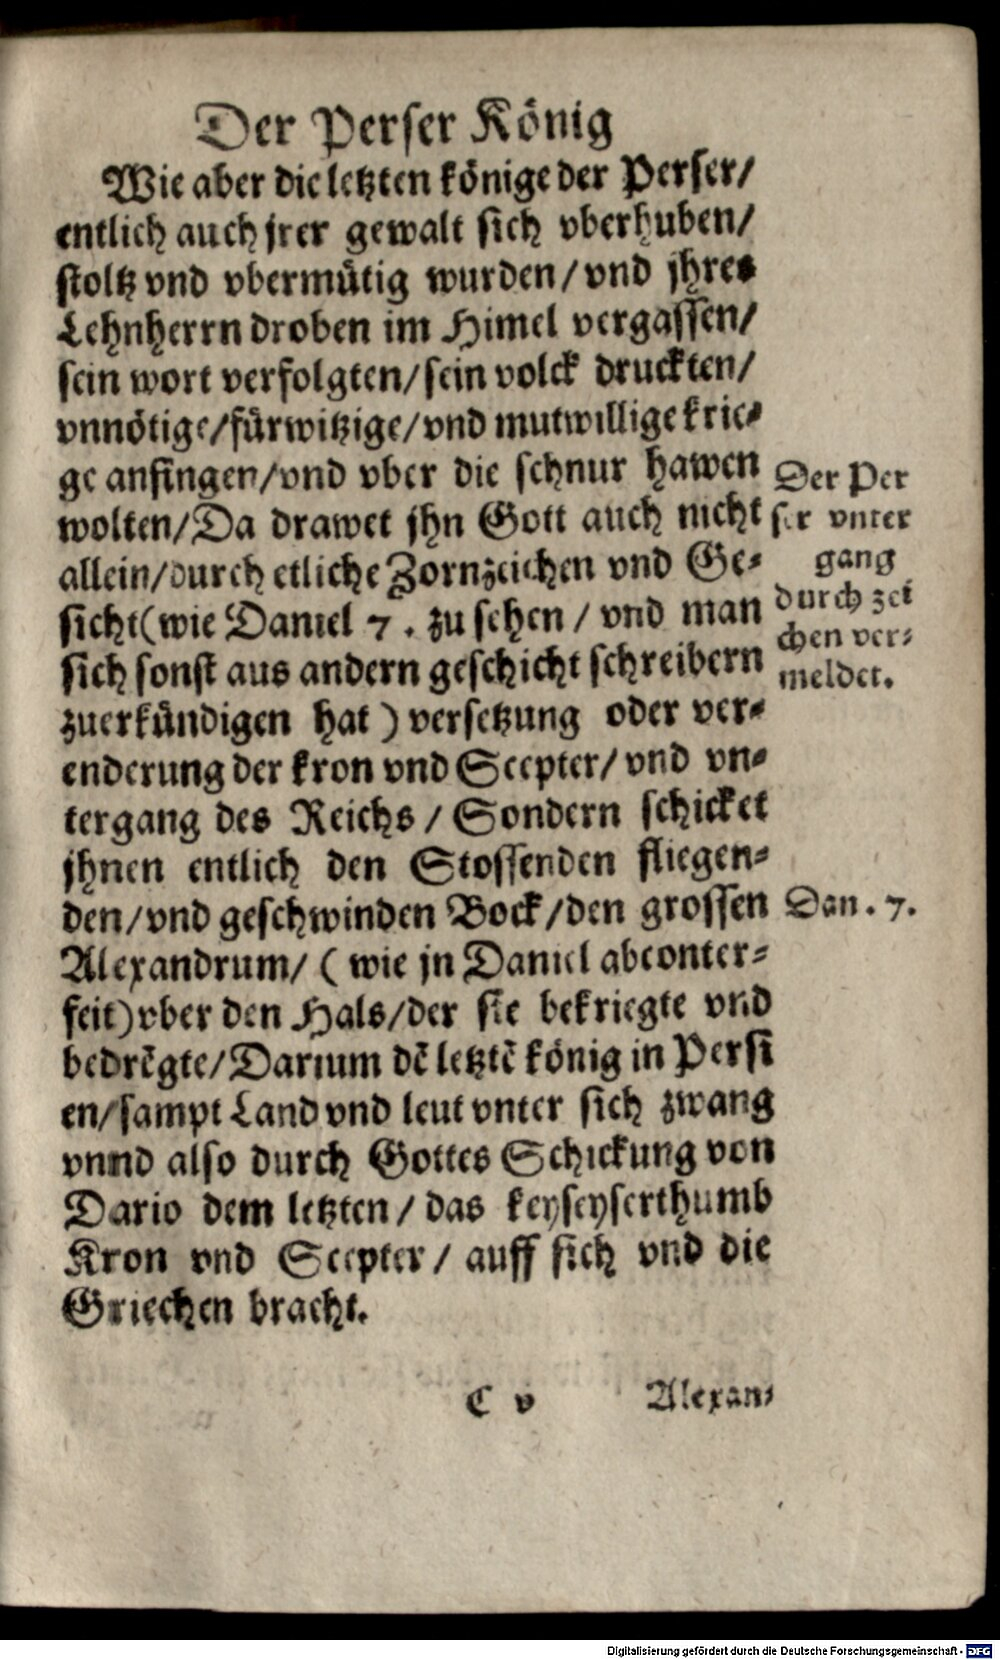 Der Perser König
Wie aber die letzten könige der Perser/
entlich auch jrer gewalt sich vberhuben/
stoltz vnd vbermütig wurden/vnd jhres
Lehnherrn droben im Himel vergassen/
sein wort verfolgten/sein volck druckten/
vnnötige/fürwitzige/vnd mutwillige krie-
ge anfingen/vnd vber die schnur hawen
wolten/Da drawet jhn Gott auch nicht
allein/durch etliche Zornzeichen vnd Ge-
sicht(wie Daniel 7. zu sehen/vnd man
sich sonst aus andern geschicht schreibern
zuerkündigen hat) versetzung oder ver-
enderung der kron vnd Scepter/vnd vn-
tergang des Reichs/Sondern schicket
jhnen entlich den Stossenden fliegen-
den/vnd geschwinden Bock/den grossen
Alexandrum/(wie jn Daniel abconter-
feit)vber den Hals/der sie bekriegte vnd
bedrẽgte/Darium dẽ letztẽ könig in Persi
en/sampt Land vnd leut vnter sich zwang
vnnd also durch Gottes Schickung von
Dario dem letzten/das keyseyserthumb
Kron vnd Scepter/auff sich vnd die
Griechen bracht.
Der Per
ser vnter
gang
durch zei
chen ver-
meldet.
Dan. 7.
C v
Alexan-
Digitalisierung gefördert durch die Deutsche Forschungsgemeinschaft - DFG